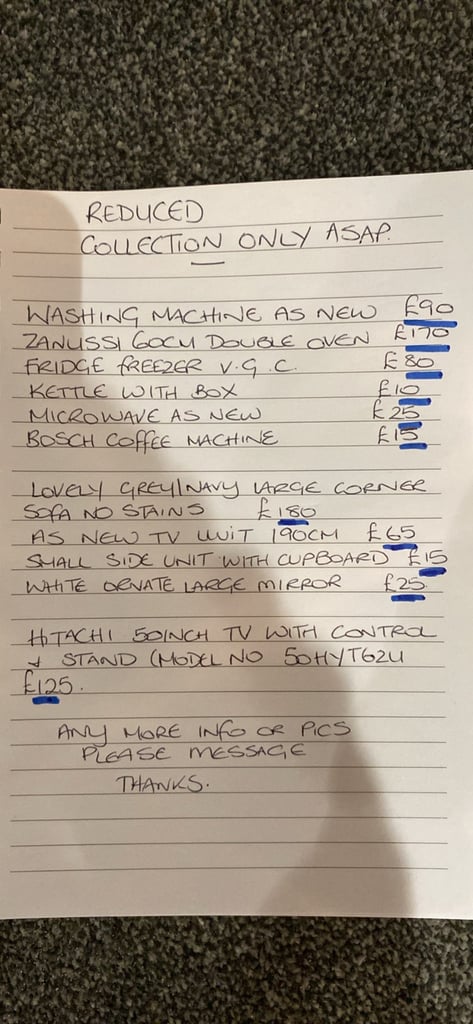 REDUCED
COLLECTION ONLY ASAP.
WASHING MACHINE AS NEW £90
ZANUSSI 60CM DOUBLE OVEN £170
FRIDGE FREEZER V.G.C. £80
KETTLE WITH BOX £10
MICROWAVE AS NEW £25
BOSCH COFFEE MACHINE £15
LOVELY GREY/NAVY LARGE CORNER
SOFA NO STAINS £180
AS NEW TV UNIT 190CM £65
SMALL SIDE UNIT WITH CUPBOARD £15
WHITE ORNATE LARGE MIRROR £25
HITACHI 50INCH TV WITH CONTROL
+ STAND (MODEL NO 50HYT62U
£125.
ANY MORE INFO OR PICS
PLEASE MESSAGE
THANKS.